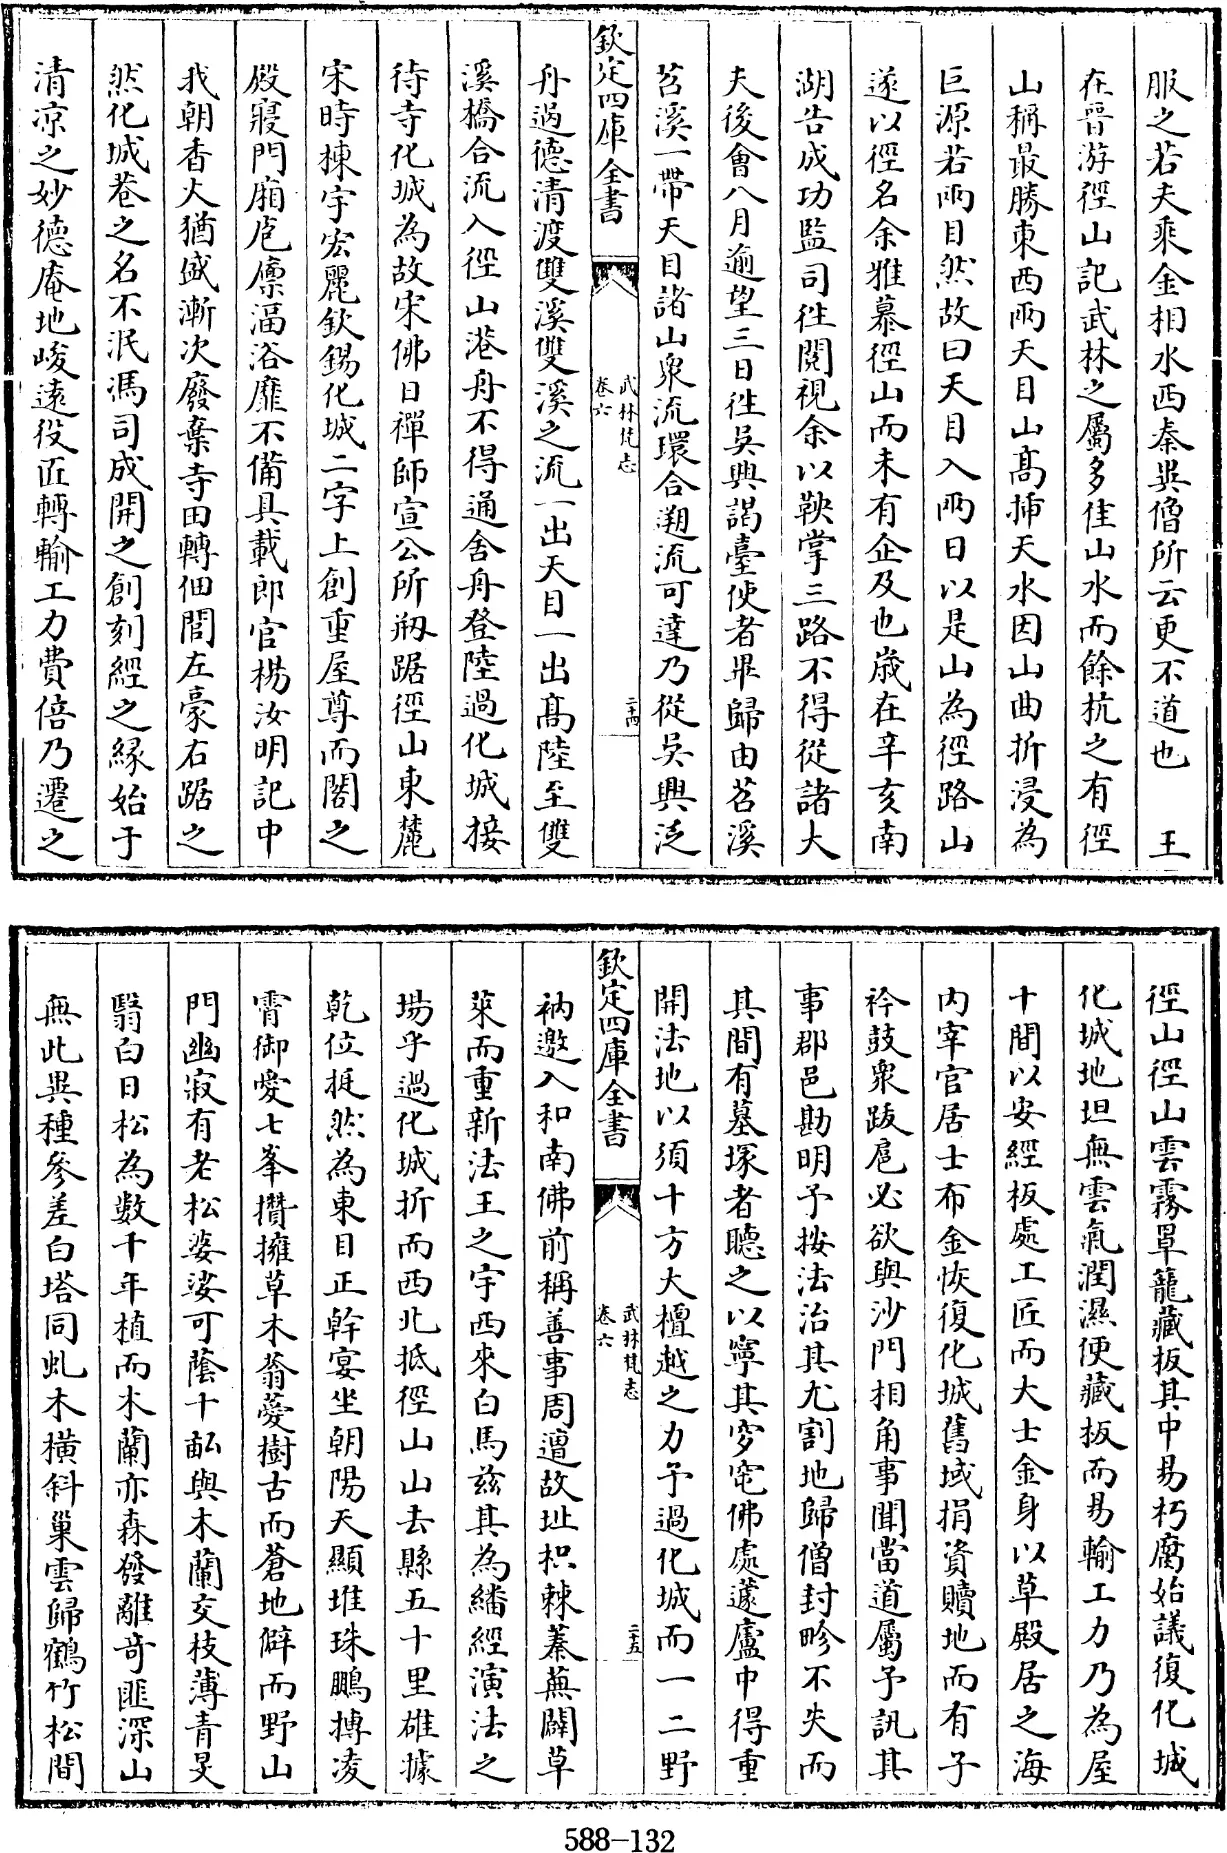 服之若夫乘金相水西秦吳僧所云更不道也　王
在晉游徑山記武林之屬多佳山水而餘杭之有徑
山稱最勝東西兩天目山高揷天水因山曲折浸為
巨源若兩目然故曰天目入兩日以是山為徑路山
遂以徑名余雅慕徑山而未有企及也歲在辛亥南
湖告成功監司徃閱視余以鞅掌三路不得從諸大
夫後會八月逾望三日徃吳興謁臺使者畢歸由苕溪
苕溪一帶天目諸山衆流環合遡流可達乃從吳興泛
欽定四庫全書
武林梵志
卷六
二十四
舟過德清渡雙溪雙溪之流一出天目一出髙陸至雙
溪橋合流入徑山港舟不得通舍舟登陸過化城接
待寺化城為故宋佛日禪師宣公所剙踞徑山東麓
宋時棟宇宏麗欽錫化城二字上創重屋尊而閣之
殿寢門廂庖廩湢浴靡不備具載郎官楊汝明記中
我朝香火猶盛漸次廢棄寺田轉佃閭左豪右踞之
然化城巷之名不泯馮司成開之創刻經之縁始于
清凉之妙德庵地峻遠役匠轉輸工力費倍乃遷之
徑山徑山雲霧罩籠藏板其中易朽腐始議復化城
化城地坦無雲氣潤濕便藏板而易輸工力乃為屋
十間以安經板處工匠而大士金身以草殿居之海
内宰官居士布金恢復化城舊域捐資贖地而有子
衿鼓衆跋扈必欲與沙門相角事聞當道屬予訊其
事郡邑勘明予按法治其尤割地歸僧封畛不失而
其間有墓塚者聽之以寧其穸窀佛處蘧廬中得重
開法地以須十方大檀越之力予過化城而一二野
欽定四庫全書
武林梵志
卷六
二十五
衲邀入和南佛前稱善事周遭故址枳棘蓁蕪闢草
萊而重新法王之宇西來白馬兹其為繙經演法之
塲乎過化城折而西北抵徑山山去縣五十里雄據
乾位挺然為東目正幹宴坐朝陽天顯堆珠鵬搏凌
霄御愛七峯攢擁草木蓊薆樹古而蒼地僻而野山
門幽寂有老松婆娑可蔭十畝與木蘭交枝薄青旻
翳白日松為數千年植而木蘭亦森發離奇匪深山
無此異種參差白塔同虬木橫斜巢雲歸鶴竹松間
588–132